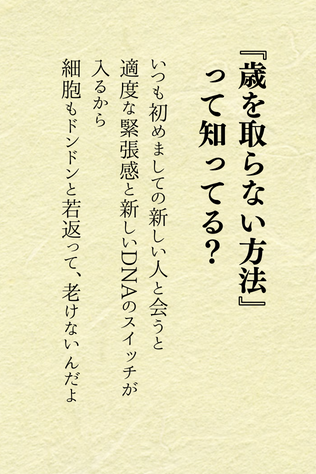 『歳を取らない方法』
って知ってる？
いつも初めましての新しい人と会うと
適度な緊張感と新しいDNAのスイッチが
入るから
細胞もドンドンと若返って、老けないんだよ